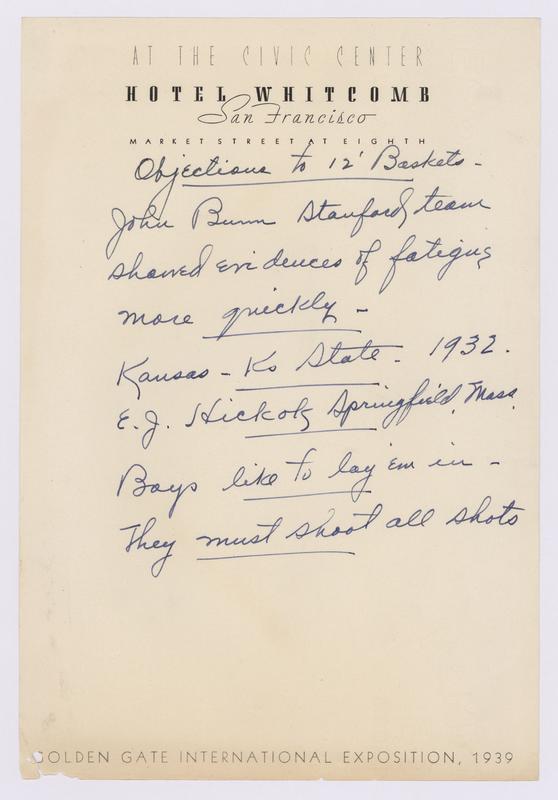 AT THE CIVIC CENTER
HOTEL WHITCOMB
San Francisco
MARKET STREET AT EIGHTH
Objections to 12' Baskets -
John Bunn Stanford team
showed evidences of fatigue
more quickly -
Kansas - Ks State - 1932.
E. J. Hickok Springfield, Mass
Boys like to lay 'em in -
They must shoot all shots
GOLDEN GATE INTERNATIONAL EXPOSITION, 1939